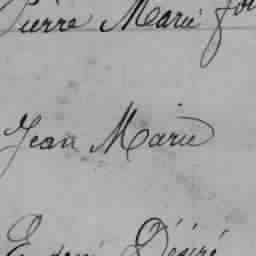 Pierre Marie
Jean Marie
Désiré